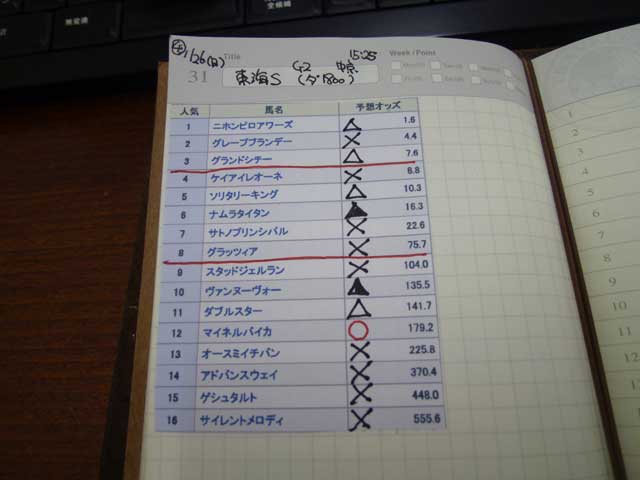 ④ 1/26(日) Title 15:25 Week / Point
31 東海S G2 中京 (ダ1800)
人気 馬名 予想オッズ
1 ニホンピロアワーズ △ 1.6
2 グレープブランデー × 4.4
3 グランドシチー △ 7.6
4 ケイアイレオーネ × 8.8
5 ソリタリーキング △ 10.3
6 ナムラタイタン ▲ 16.3
7 サトノプリンシパル × 22.6
8 グラッツィア × 75.7
9 スタッドジェルラン × 104.0
10 ヴァンヌーヴォー ▲ 135.5
11 ダブルスター △ 141.7
12 マイネルバイカ ○ 179.2
13 オースミイチバン × 225.8
14 アドバンスウェイ × 370.4
15 ゲシュタルト × 448.0
16 サイレントメロディ × 555.6